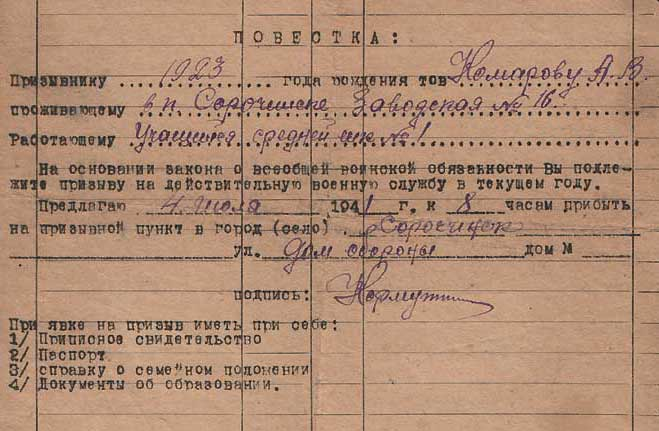 ПОВЕСТКА:
Призывнику 1923 года рождения тов Комарову А.В.
проживающему в п. Сорочинске Заводская № 16
Работающему Учащийся средней шк №1
На основании закона о всеобщей воинской обязанности Вы подле-
жите призыву на действительную военную службу в текущем году.
Предлагаю 4 июля 1941 г. к 8 часам прибыть
на призывной пункт в город (село) г Сорочинск
ул. Дом обороны дом №
подпись:
При явке на призыв иметь при себе:
1/ Приписное свидетельство
2/ Паспорт
3/ справку о семейном положении
4/ Документы об образовании.